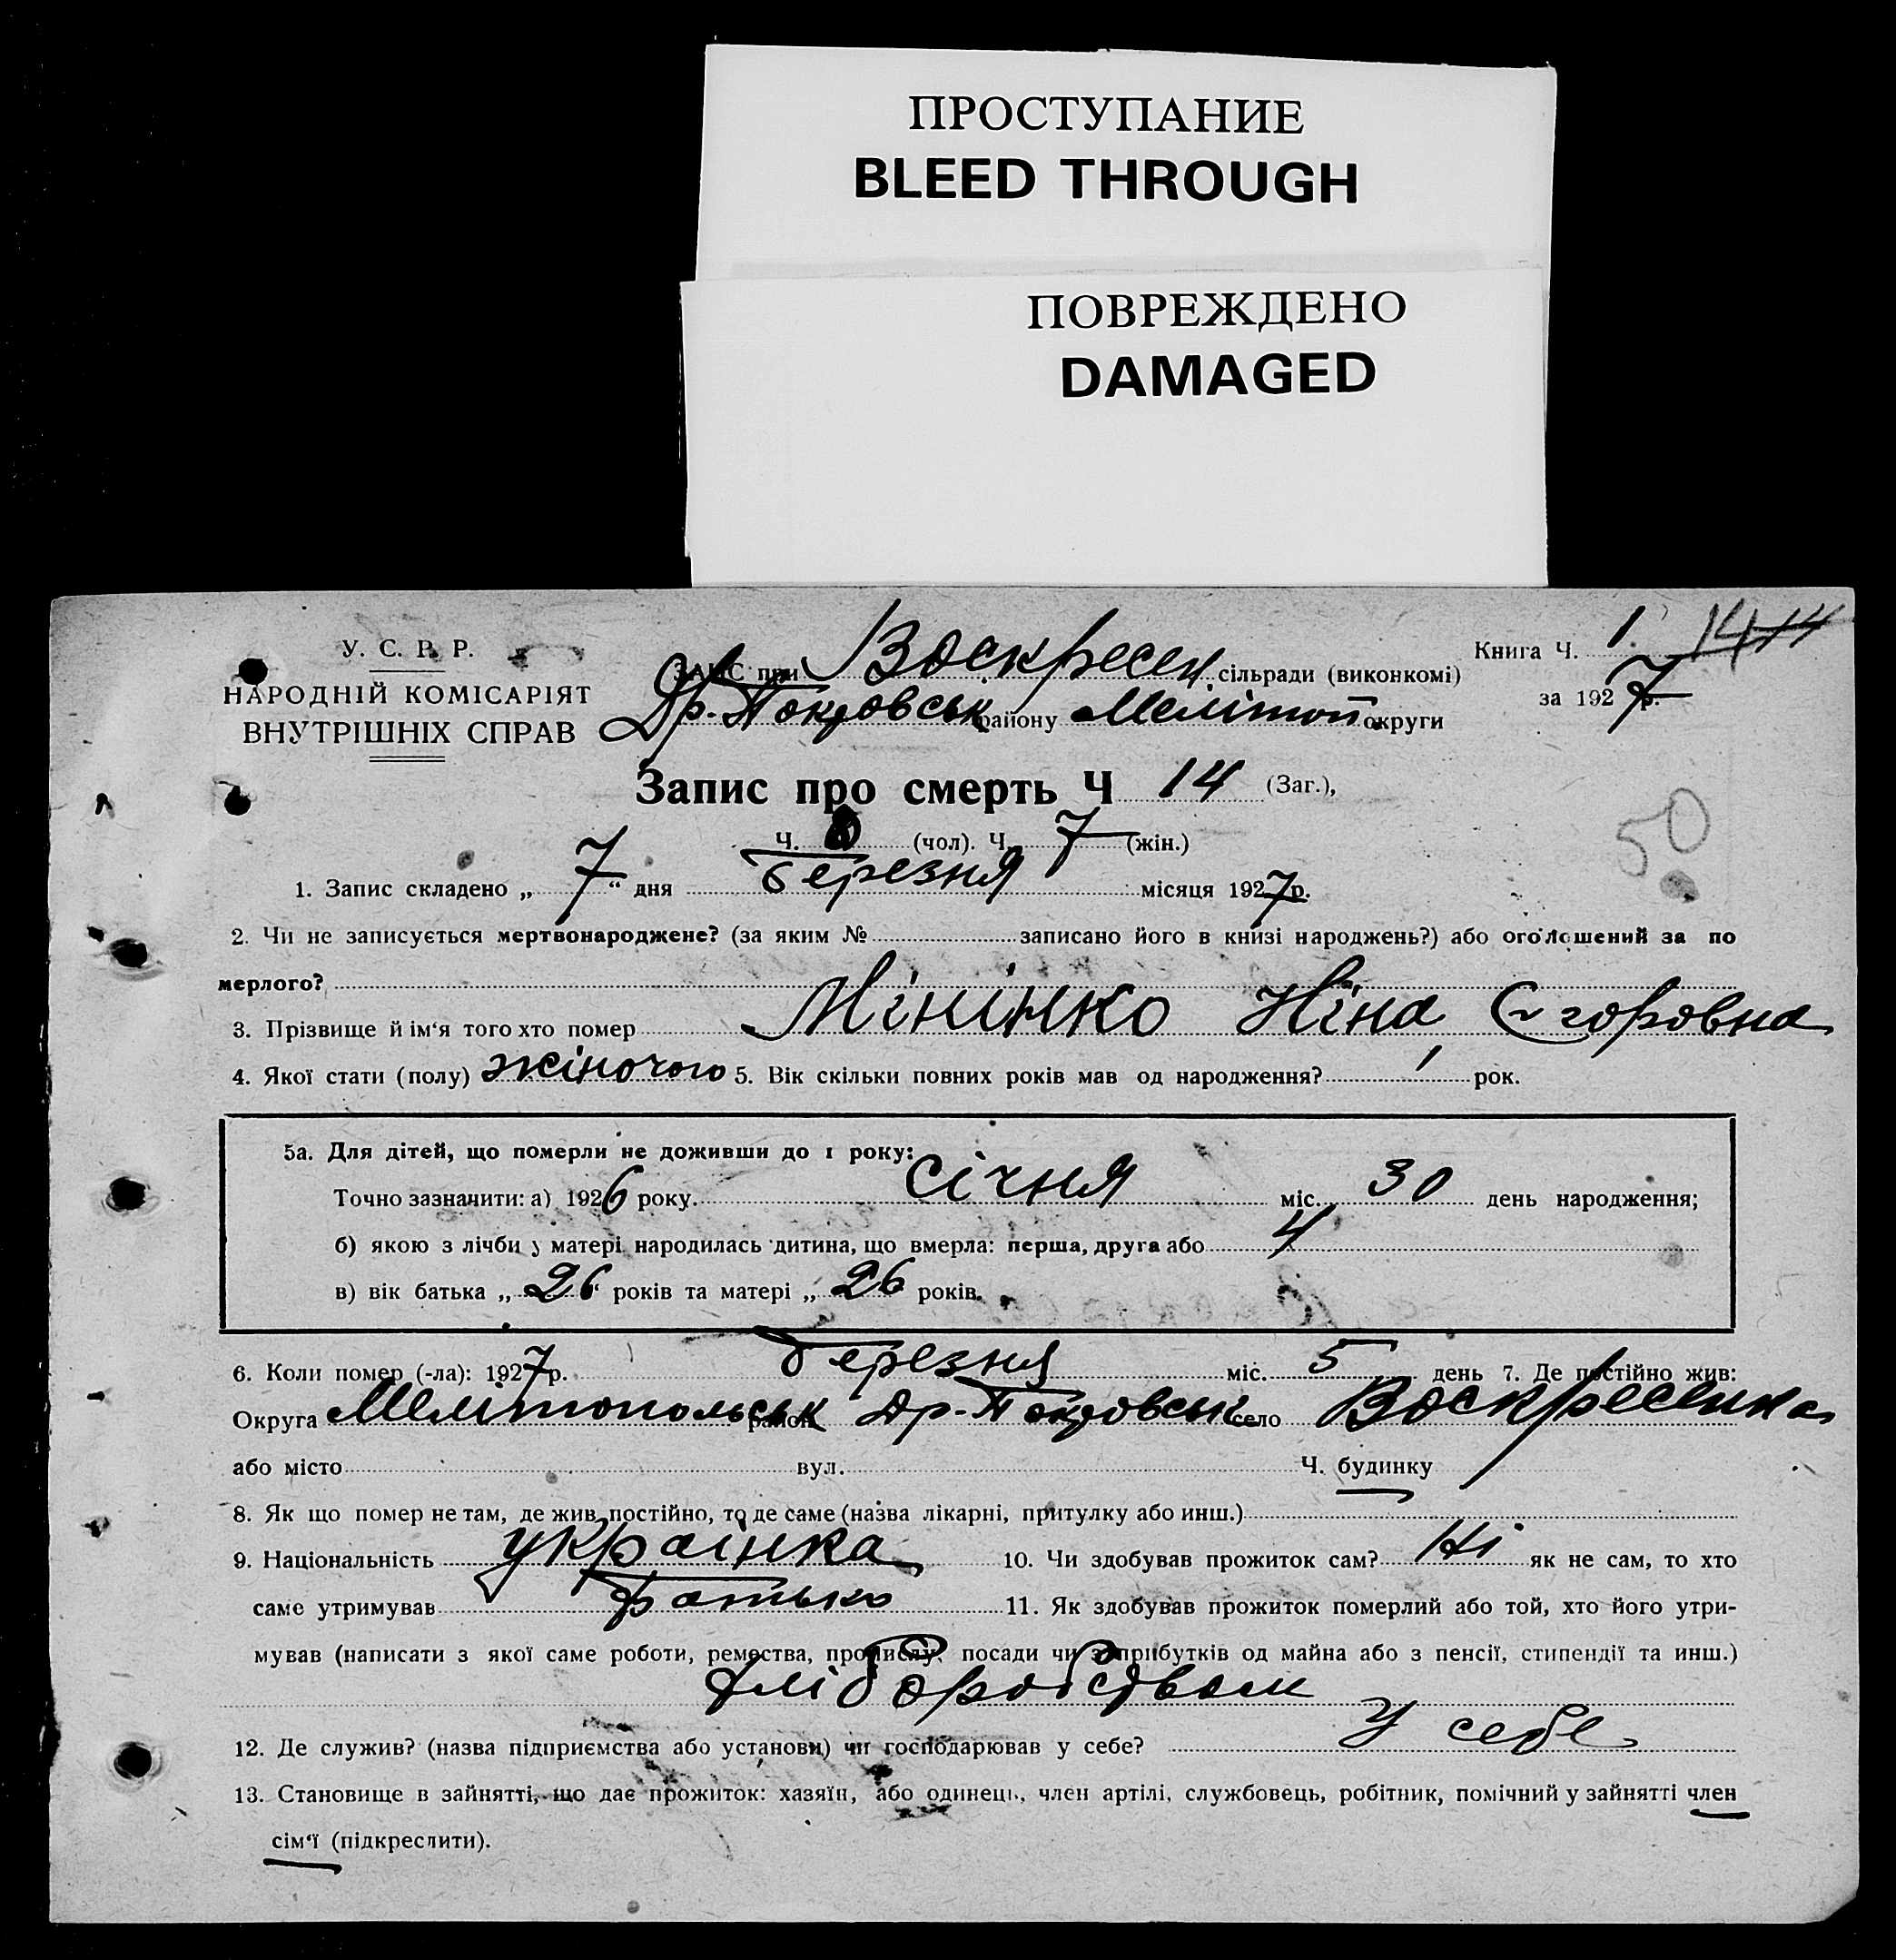 ПРОСТУПАНИЕ
BLEED THROUGH
ПОВРЕЖДЕНО
DAMAGED
У. С. Р. Р.
НАРОДНІЙ КОМІСАРІЯТ
ВНУТРІШНІХ СПРАВ
ЗАПИС при Воскресен сільради (виконкомі)
Др.-Покровськ району Мелітоп. округи
Книга Ч. 1. 14 14
за 1927 р.
Запис про смерть Ч 14 (Заг.),
Ч. (чол). Ч. 7 (жін.)
50
1. Запис складено „ 7 “ дня березня місяця 1927р.
2. Чи не записується мертвонароджене? (за яким № записано його в книзі народжень?) або оголошений за по
мерлого?
3. Прізвище й ім‘я того хто помер Мінінко Ніна Єгоровна
4. Якої стати (полу) жіночого 5. Вік скільки повних років мав од народження? 1 рок.
5а. Для дітей, що померли не доживши до 1 року:
Точно зазначити: а) 1926 року. січня міс. 30 день народження;
б) якою з лічби у матері народилась дитина, що вмерла: перша, друга або 4
в) вік батька „ 26 “ років та матері „ 26 років.
6. Коли помер (-ла): 1927р. березня міс. 5 день 7. Де постійно жив:
Округа Мелітопольськ район Др.-Покровськ село Воскресенка
або місто вул. Ч. будинку
8. Як що помер не там, де жив постійно, то де саме (назва лікарні, притулку або инш.)
9. Національність українка 10. Чи здобував прожиток сам? Ні як не сам, то хто
саме утримував батько 11. Як здобував прожиток померлий або той, хто його утри-
мував (написати з якої саме роботи, ремества, промислу, посади чи з прибутків од майна або з пенсії, стипендії та инш.)
хліборобством
12. Де служив? (назва підприємства або установи) чи господарював у себе? У себе
13. Становище в зайнятті, що дає прожиток: хазяїн, або одинець, член артілі, службовець, робітник, помічний у зайнятті член
сім‘ї (підкреслити).